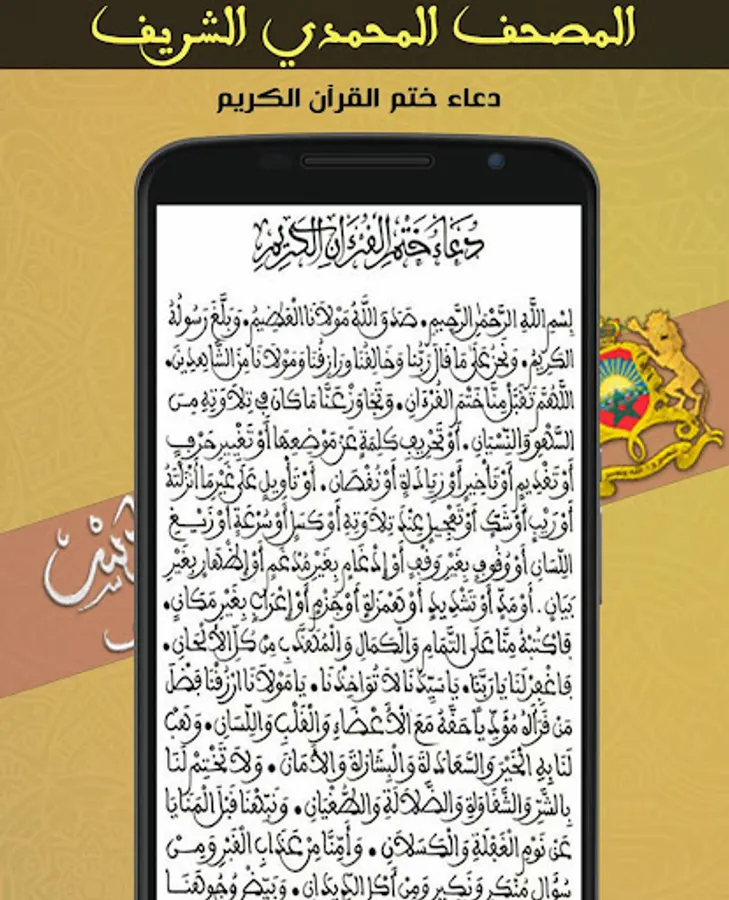 المصحف المحمدي الشريف
دعاء ختم القرآن الكريم
دُعَاءُ خَتْمِ الْقُرْءَانِ الْكَرِيمِ
بِسْمِ اللَّهِ الرَّحْمٰنِ الرَّحِيمِ. صَدَقَ اللَّهُ مَوْلَانَا الْعَظِيمُ. وَبَلَّغَ رَسُولُهُ
الْكَرِيمُ. وَنَحْنُ عَلَى مَا قَالَ رَبُّنَا وَخَالِقُنَا وَرَازِقُنَا وَمَوْلَانَا مِنَ الشَّاهِدِينَ.
اللَّهُمَّ تَقَبَّلْ مِنَّا خَتْمَ الْقُرْءَانِ. وَتَجَاوَزْ عَنَّا مَا كَانَ فِي تِلَاوَتِهِ مِنَ
السَّهْوِ وَالنِّسْيَانِ. أَوْ تَحْرِيفِ كَلِمَةٍ عَنْ مَوْضِعِهَا أَوْ تَغْيِيرِ حَرْفٍ
أَوْ تَقْدِيمٍ أَوْ تَأْخِيرٍ أَوْ زِيَادَةٍ أَوْ نُقْصَانٍ. أَوْ تَأْوِيلٍ عَلَى غَيْرِ مَا أَنْزَلْتَهُ
أَوْ رَيْبٍ أَوْ شَكٍّ أَوْ تَعْجِيلٍ عِنْدَ تِلَاوَتِهِ أَوْ كَسَلٍ أَوْ سُرْعَةٍ أَوْ زَيْغِ
اللِّسَانِ أَوْ وُقُوفٍ بِغَيْرِ وَقْفٍ أَوْ إِدْغَامٍ بِغَيْرِ مُدْغَمٍ أَوْ إِظْهَارٍ بِغَيْرِ
بَيَانٍ. أَوْ مَدٍّ أَوْ تَشْدِيدٍ أَوْ هَمْزَةٍ أَوْ جَزْمٍ أَوْ إِعْرَابٍ بِغَيْرِ مَكَانٍ.
فَاكْتُبْهُ مِنَّا عَلَى التَّمَامِ وَالْكَمَالِ وَالْمُهَذَّبِ مِنْ كُلِّ الْأَلْحَانِ.
فَاغْفِرْ لَنَا يَا رَبَّنَا. يَا سَيِّدَنَا لَا تُؤَاخِذْنَا. يَا مَوْلَانَا ارْزُقْنَا فَضْلَ
مَنْ قَرَأَهُ مُؤَدِّياً حَقَّهُ مَعَ الْأَعْضَاءِ وَالْقَلْبِ وَاللِّسَانِ. وَهَبْ
لَنَا بِهِ الْخَيْرَ وَالسَّعَادَةَ وَالْبِشَارَةَ وَالْأَمَانَ. وَلَا تَخْتِمْ لَنَا
بِالشَّرِّ وَالشَّقَاوَةِ وَالضَّلَالَةِ وَالطُّغْيَانِ. وَنَبِّهْنَا قَبْلَ الْمَنَايَا
عَنْ نَوْمِ الْغَفْلَةِ وَالْكَسَلَانِ. وَأَمِّنَّا مِنْ عَذَابِ الْقَبْرِ وَمِنْ
سُؤَالِ مُنْكَرٍ وَنَكِيرٍ وَمِنْ أَكْلِ الدِّيدَانِ. وَبَيِّضْ وُجُوهَنَا